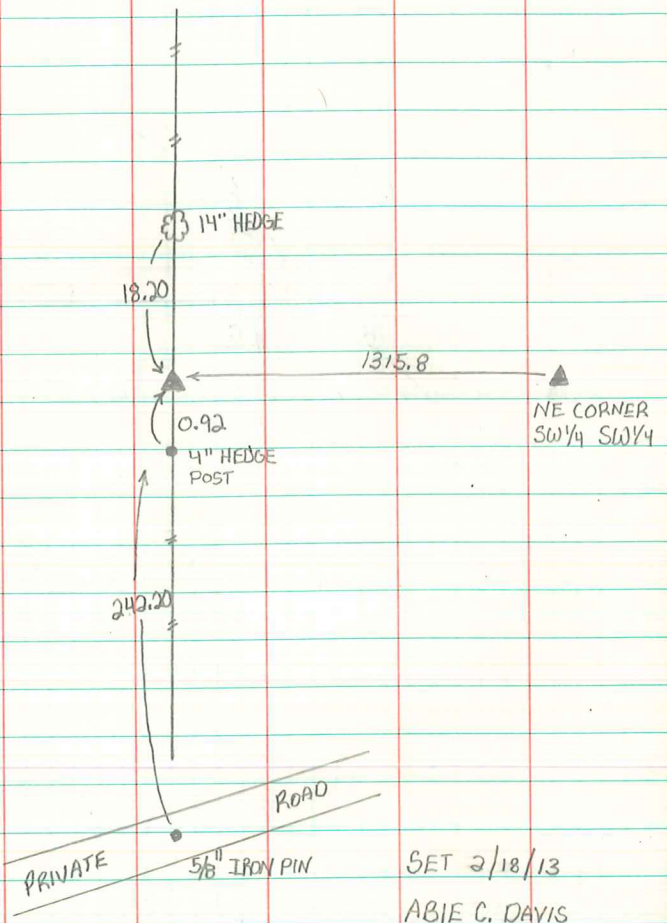 14" HEDGE
18.20
1315.8
NE CORNER
SW 1/4 SW 1/4
0.92
4" HEDGE
POST
242.20
ROAD
PRIVATE
5/8" IRON PIN
SET 2/18/13
ABIE C. DAVIS